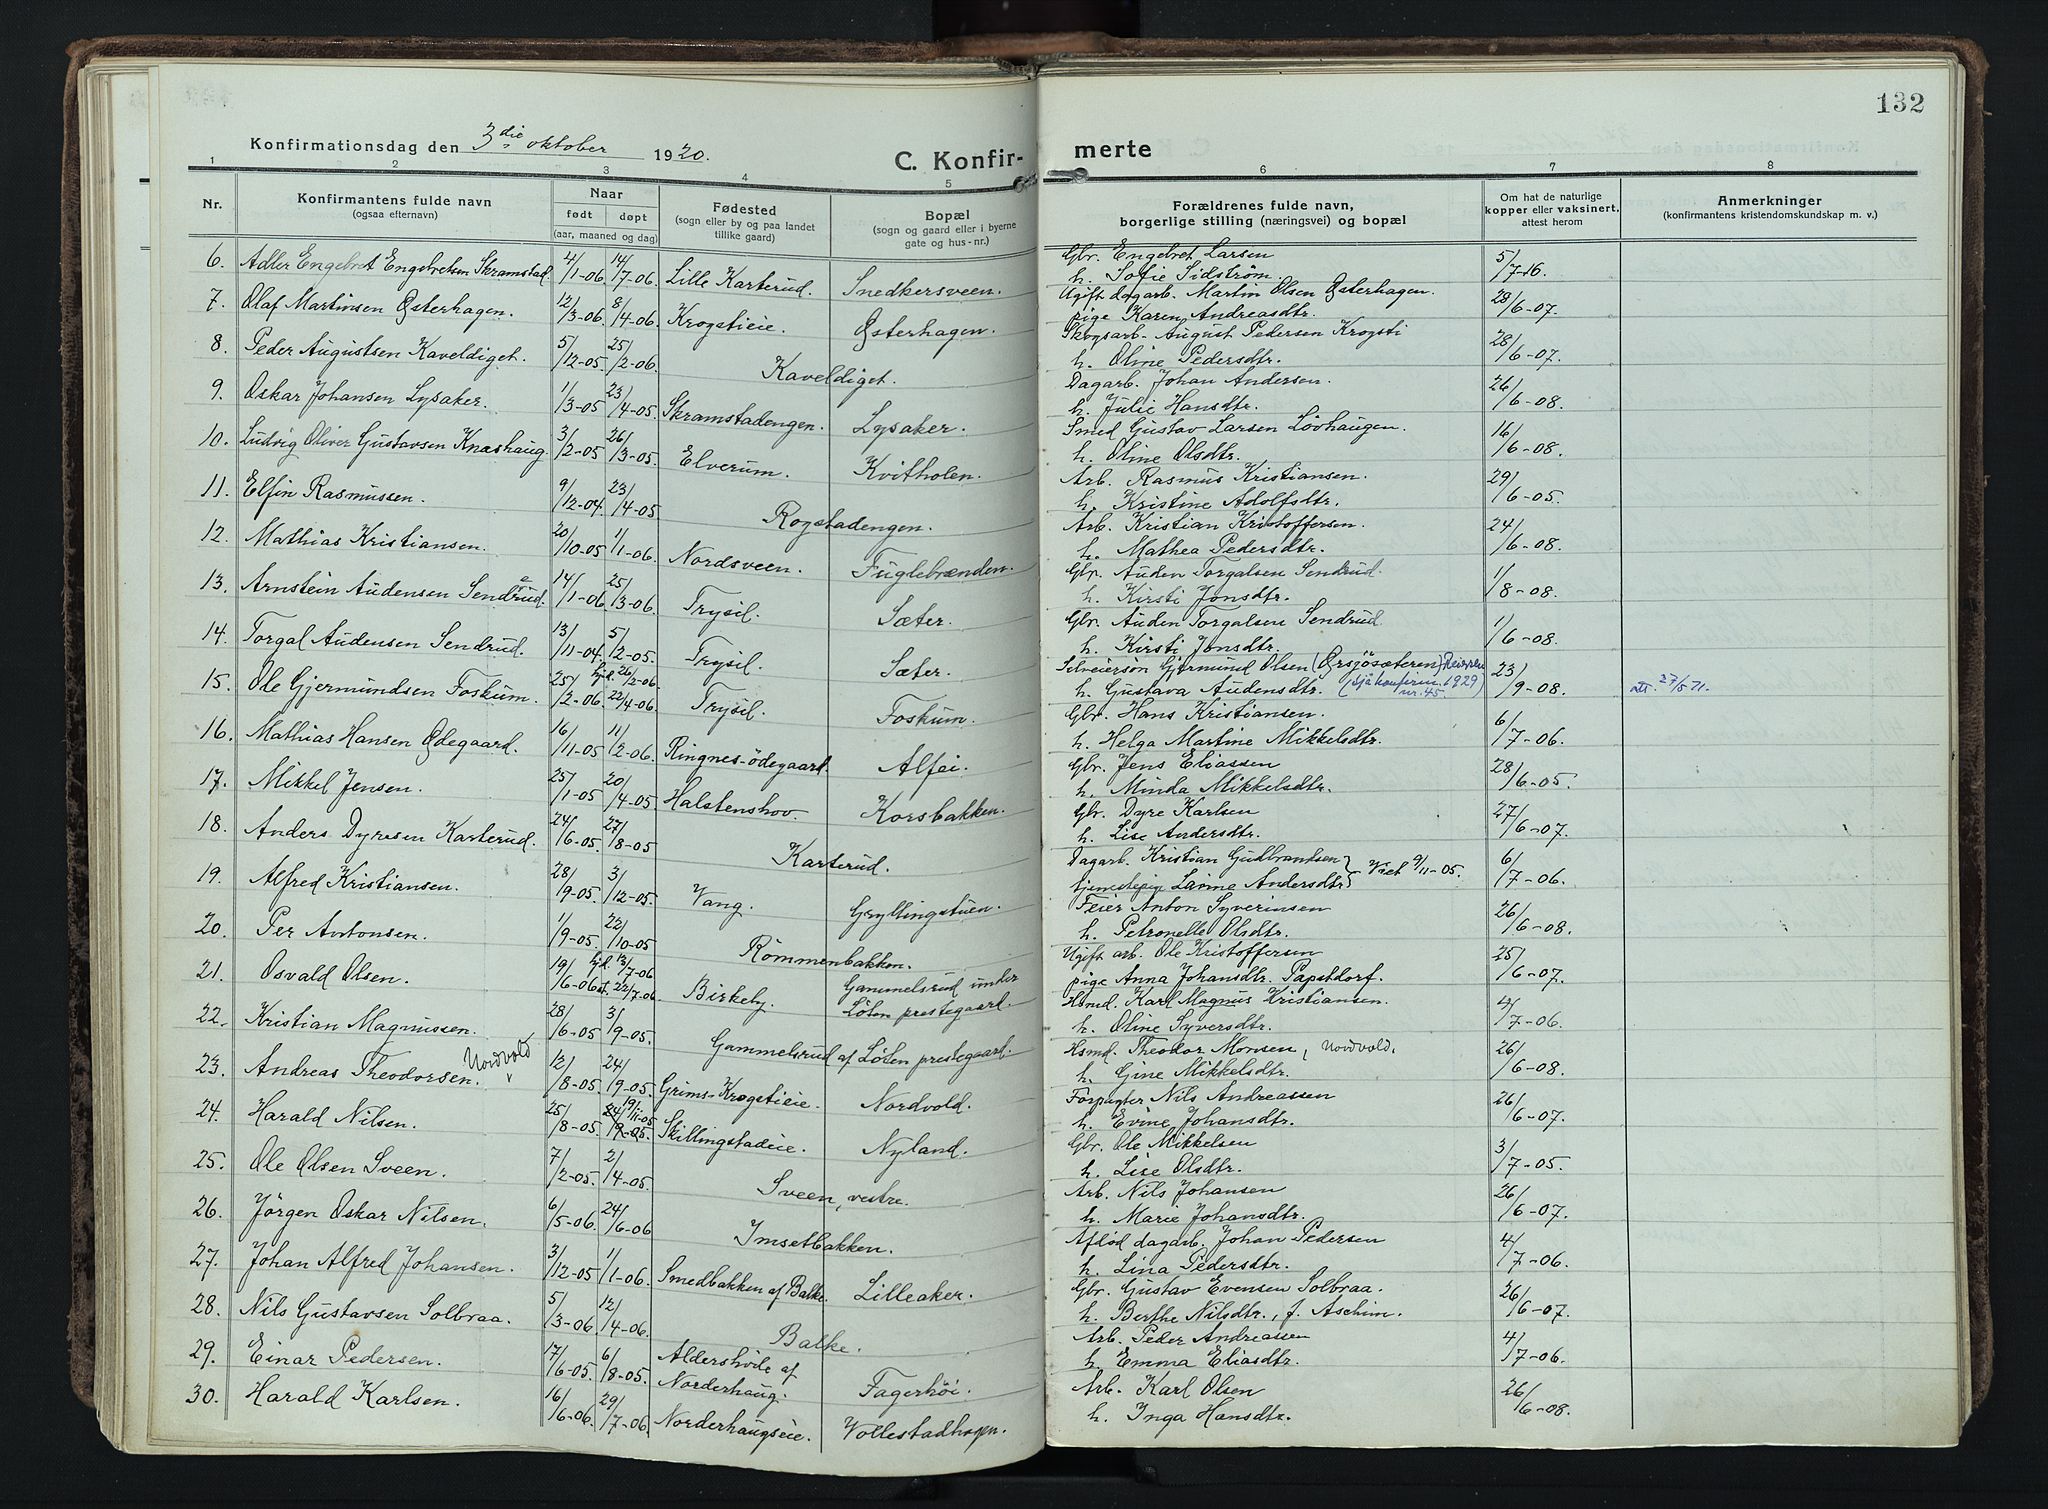 132
Konfirmationsdag den 3die oktober 1920.
C. Konfirmerte
1 2 3 4 5 6 7 8
Nr.
Konfirmantens fulde navn
(ogsaa efternavn)
Naar
født døpt
(aar, maaned og dag)
Fødested
(sogn eller by og paa landet
tillike gaard)
Bopæl
(sogn og gaard eller i byerne
gate og hus-nr.)
Forældrenes fulde navn,
borgerlige stilling (næringsvei) og bopæl
Om hat de naturlige
kopper eller vaksinert,
attest herom
Anmerkninger
(konfirmantens kristendomskundskap m. v.)
6. Adler Engebret Engebretsen Skramstad. 4/1-06. 14/7-06. Lille Karterud. Snedkersveen. Gbr. Engebret Larsen
h. Sofie Sidström. 5/7-16.
7. Olaf Martinsen Østerhagen. 12/3-06. 8/4-06. Krogstieie. Østerhagen. Ugift dagarb. Martin Olsen Østerhagen.
pige Karen Andreasdtr. 28/6-07.
8. Peder Augustsen Kaveldiget. 5/12-05. 25/2-06. Kaveldiget. Skogsarb. August Pedersen Krogsti
h. Oline Pedersdtr. 28/6-07.
9. Oskar Johansen Lysaker. 1/3-05. 23/4-05. Skramstadengen. Lysaker. Dagarb. Johan Andersen.
h. Julie Hansdtr. 26/6-08.
10. Ludvig Oliver Gustavsen Knæshaug. 3/2-05. 26/3-05. Elverum. Kvitholen. Smed Gustav Larsen Lövhaugen.
h. Oline Olsdtr. 16/6-08.
11. Elfin Rasmussen. 9/12-04. 23/4-05. Rogstadengen. Arb. Rasmus Kristiansen.
h. Kristine Adolfsdtr. 29/6-05.
12. Mathias Kristiansen. 20/10-05. 1/1-06. Nordsveen. Fuglebrænden. Arb. Kristian Kristoffersen.
h. Mathea Pedersdtr. 24/6-08.
13. Arnstein Audensen Sendrud. 14/1-06. 25/3-06. Trysil. Sæter. Gbr. Auden Torgalsen Sendrud.
h. Kirsti Jonsdtr. 1/8-08.
14. Torgal Audensen Sendrud. 13/11-04. 5/2-05. Trysil. Sæter. Gbr. Auden Torgalsen Sendrud
h. Kirsti Jonsdtr. 1/6-08.
15. Ole Gjermundsen Foskum. 25/2-06. hjd. 26/2-06. 22/4-06. Trysil. Foskum. Selveiersøn Gjermund Olsen (Ørsjösæteren)
h. Gustava Audensdtr. (sjå konfirm. 1929 nr. 45) 23/9-08. att. 27/5 71.
16. Mathias Hansen Ødegaard. 16/11-05. 11/2-06. Ringnes-ödegaard. Alfei. Gbr. Hans Kristiansen.
h. Helga Martine Mikkelsdtr. 6/7-06.
17. Mikkel Jensen. 25/1-05. 20/4-05. Halstenshov. Korsbakken. Gbr. Jens Eliassen
h. Minda Mikkelsdtr. 28/6-05.
18. Anders Dyresen Karterud. 24/6-05. 27/8-05 Karterud. Gbr. Dyre Karlsen
h. Lise Andersdtr. 27/6-07.
19. Alfred Kristiansen. 28/9-05. 3/12-05. Vang. Gryllingstuen. Dagarb. Kristian Gudbrandsen
tjenestepige Lavine Andersdtr. } Viet 9/11-05. 6/7-06.
20. Per Antonsen. 1/9-05. 22/10-05 Römmenbakken. Feier Anton Syverinsen
h. Petronelle Olsdtr. 26/6-08.
21. Osvald Olsen. 19/6-06. hjd. 13/7-06 st. 22/7-06. Birkeby. Gammelsrud under
Løten prestegaard. Ugift arb. Ole Kristoffersen
pige Anna Johansdtr. Papstdorf. 25/6-07.
22. Kristian Magnussen. 28/6-05. 3/9-05. Gammelsrud af Løten prestegaard. Hsmd. Karl Magnus Kristiansen.
h. Oline Syversdtr. 4/7-06.
23. Andreas Theodorsen. Nordvold 12/8-05. 24/9-05. Grims-Krogstieie. Nordvold. Hsmd. Theodor Monsen, Nordvold.
h. Gine Mikkelsdtr. 26/6-08.
24. Harald Nilsen. 25/8-05. 24/9-05. 19/11-05 Skillingstadeie. Nyland. Forpagter Nils Andreassen
h. Evine Johansdtr. 26/6-07.
25. Ole Olsen Sveen. 7/2-05. 2/4-05. Sveen, vestre. Gbr. Ole Mikkelsen
h. Lise Olsdtr. 3/7-05.
26. Jörgen Oskar Nilsen. 6/5-06. 24/6-06 Imsetbakken. Arb. Nils Johansen
h. Marie Johansdtr. 26/6-07.
27. Johan Alfred Johansen. 3/12-05 1/1-06. Smedbakken af Balke. Lilleaker. Aflöd dagarb. Johan Pedersen
h. Lina Pedersdtr. 4/7-06.
28. Nils Gustavsen Solbraa. 5/3-06. 12/4-06. Balke. Gbr. Gustav Evensen Solbraa.
h. Berthe Nilsdtr., f. Aschim. 26/6-07.
29. Einar Pedersen. 17/6-05. 6/8-05. Aldershvile af
Norderhaug. Fagerhöi. Arb. Peder Andreassen
h. Emma Eliasdtr. 4/7-06.
30. Harald Karlsen. 16/6-06. 29/7-06. Norderhaugseie. Vollestadhagen. Arb. Karl Olsen
h. Inga Hansdtr. 26/6-08.